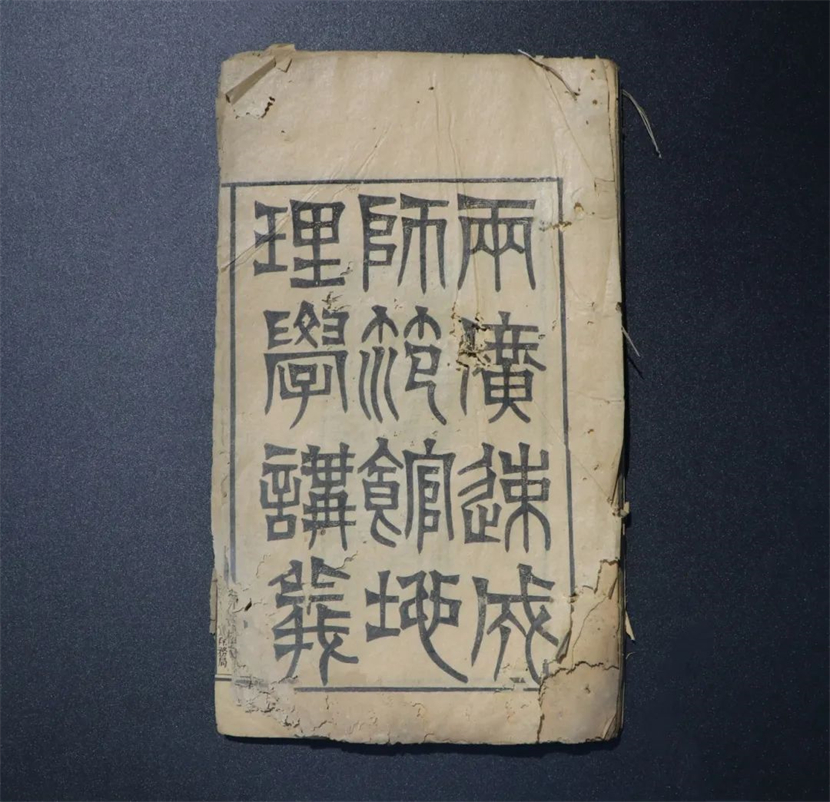 兩廣速成
師範館地
理學講義
務局